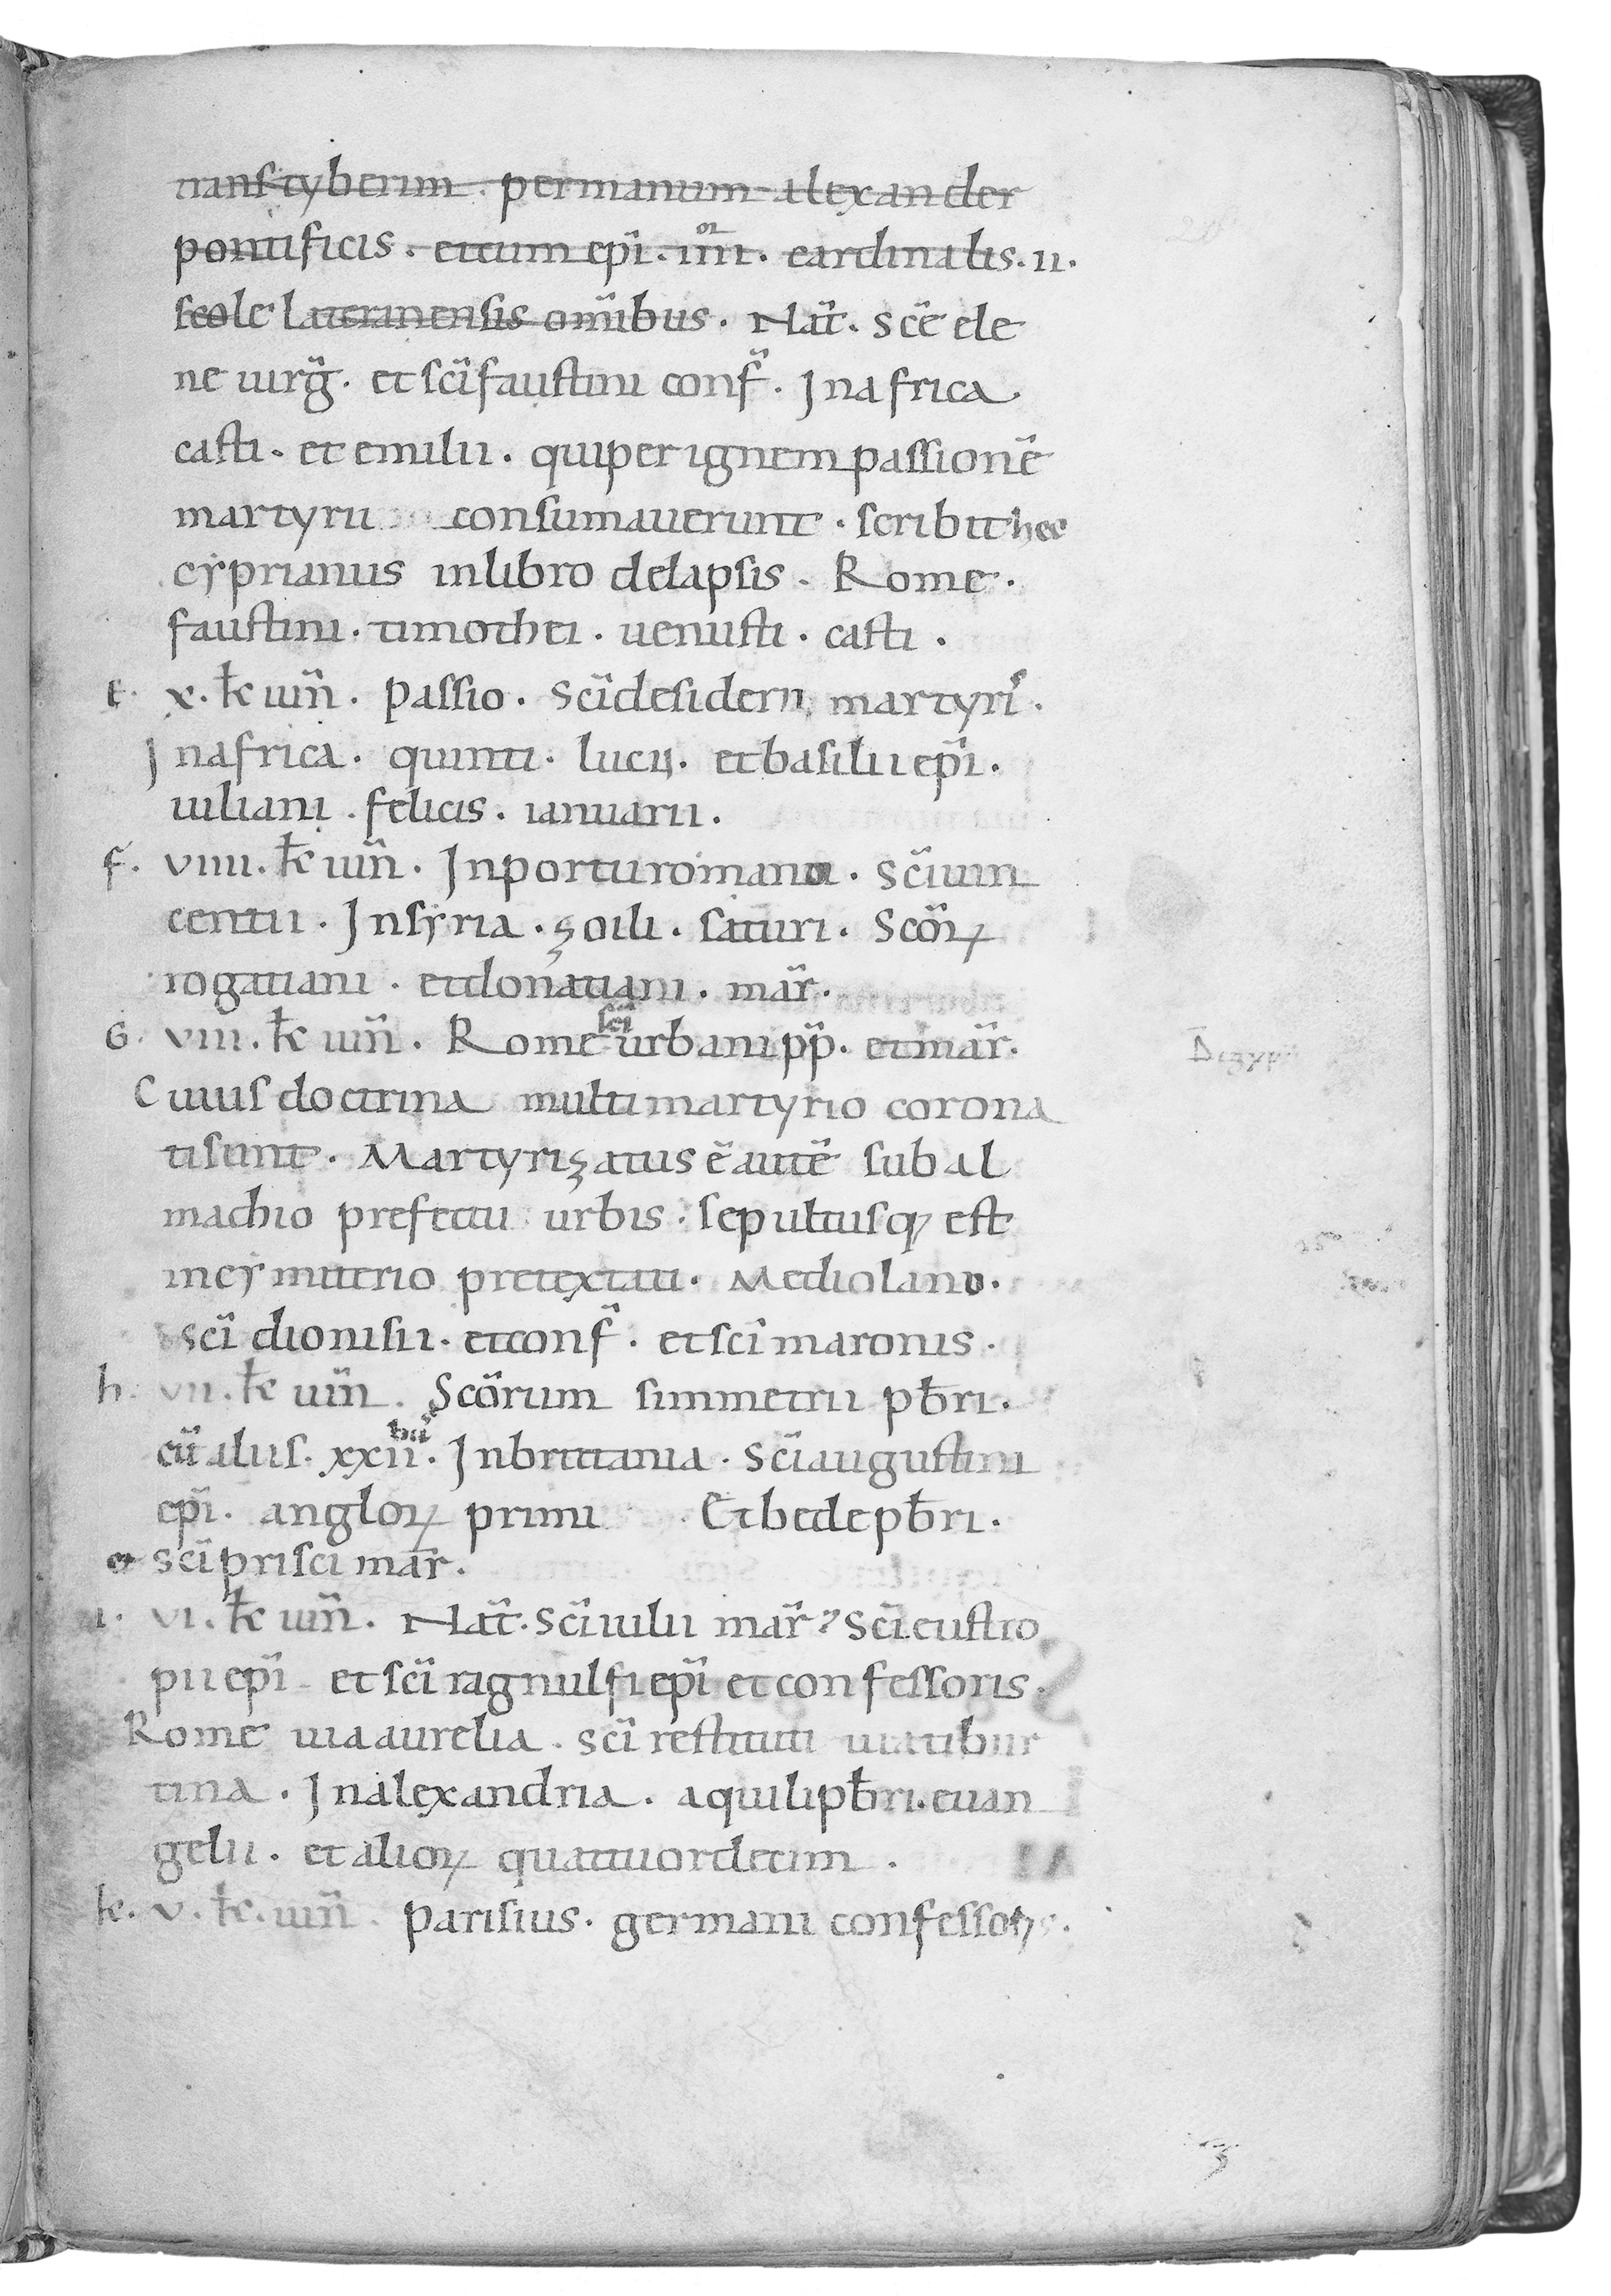 transtyberim . permanum alexander
pontificis . etcum epi̅ . IIII or . cardinalis . II .
scole lateranensis om̅ibus . Nat̅ . sc̅e ele
ne uirg̅ . et sc̅i faustini conf̅ . Inafrica .
casti . et emilii . quiper ignem passione̅
martyrii consumauerunt . scribit hec
cyprianus inlibro delapsis . Rome .
faustini . timothei . uenusti . casti .
E . X . kl̅ iun̅ . Passio . Sc̅i desiderii martyris .
Inafrica . quinti . lucii . et basilii epi̅ .
iuliani . felicis . ianuarii .
f . VIIII . kl̅ iun̅ . Inportu romano . Sc̅i uin
centii . Insyria . zoili . saturi . Sc̅oꝝ
rogatiani . et donatiani . mar̅ .
G . VIII . kl̅ iun̅ . Rome sc̅i urbani pp̅ . et mar̅ .
Cuius doctrina multi martyrio corona
ti sunt . Martyrizatus e̅ aute̅ sub al
machio prefectu urbis . sepultusq; est
incymiterio pretextati . Mediolano .
sc̅i dionisii . et conf̅ . et sc̅i maronis .
h . VII . kl̅ iun̅ . Sc̅orum simmetrii pb̅ri .
cu̅ aliis . XXII bus . Inbrittania . Sc̅i augustini
epi̅ . angloꝝ primi Et bede pb̅ri .
et sc̅i prisci mar̅ .
I . VI . kl̅ iun̅ . Nat̅ . Sc̅i iulii mar̅ . Sc̅i eustro
pii epi̅ et sc̅i ragnulfi epi̅ et confessoris .
Rome uia aurelia . sc̅i restituti uia tibur
tina . Inalexandria . aquili pb̅ri . euan
gelii . et alioꝝ quattuordecim .
k . V . kl̅ . iun̅ . Parisius . germani confessoris .